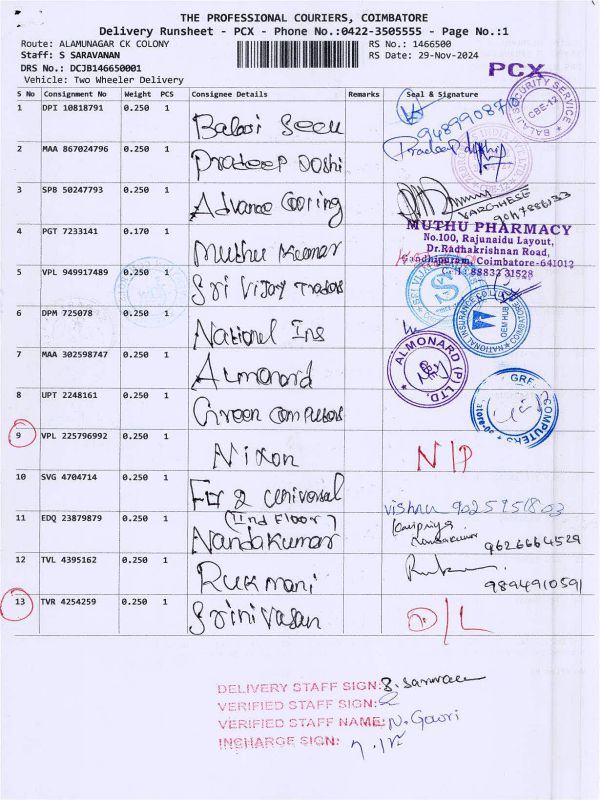 THE PROFESSIONAL COURIERS, COIMBATORE
Delivery Runsheet - PCX - Phone No.:0422-3505555 - Page No.:1
Route: ALAMUNAGAR CK COLONY
Staff: S SARAVANAN
DRS No.: DCJB146650001
Vehicle: Two Wheeler Delivery
RS No.: 1466500
RS Date: 29-Nov-2024
PCX
S No Consignment No Weight PCS Consignee Details Remarks Seal & Signature
1 DPI 10818791 0.250 1 Balaji Secu
SECURITY SERVICE
CBE-12
2 MAA 867024796 0.250 1 Pradeep Doshi Pradeep doshi
3 SPB 50247793 0.250 1 Advance Cooring VARGHESE
4 PGT 7233141 0.170 1 Muthu Kumar
MUTHU PHARMACY
No.100, Rajunaidu Layout,
Dr.Radhakrishnan Road,
Gandhipuram, Coimbatore-641012
Cell: 88832 31528
5 VPL 949917489 0.250 1 Sri Vijay Traders
6 DPM 725078 0.250 1 National Ins
7 MAA 302598747 0.250 1 Almonard
ALMONARD (P) LTD.
8 UPT 2248161 0.250 1 Green Computers
COMPUTERS
9 VPL 225796992 0.250 1 Nixon N/P
10 SVG 4704714 0.250 1 For 2 Universal vishnu 9025951803
(IInd Floor)
11 EDQ 23879879 0.250 1 Nandakumar 9626664529
12 TVL 4395162 0.250 1 Rukmani 9894910591
13 TVR 4254259 0.250 1 Srinivasan D/L
DELIVERY STAFF SIGN: S. Saravan
VERIFIED STAFF SIGN:
VERIFIED STAFF NAME: N. Gowri
INCHARGE SIGN: